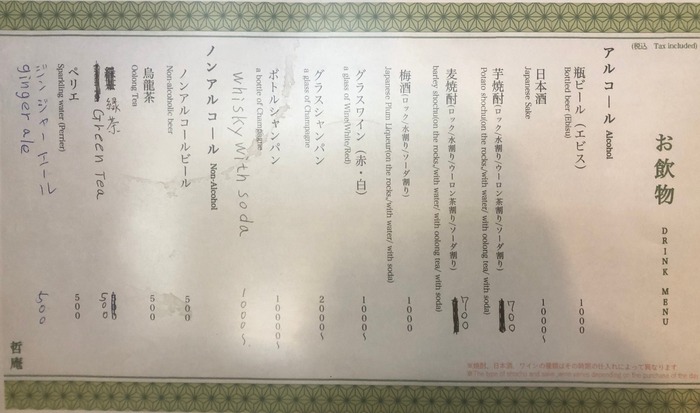 お飲物
DRINK MENU
(税込 Tax included)
アルコール Alcohol
瓶ビール(エビス) 1000
Bottled beer (Ebisu)
日本酒 1000〜
Japanese Sake
芋焼酎(ロック/水割り/ウーロン茶割り/ソーダ割り) 700
Potato shochu(on the rocks,/with water/ with oolong tea/ with soda)
麦焼酎(ロック/水割り/ウーロン茶割り/ソーダ割り) 700
barley shochu(on the rocks,/with water/ with oolong tea/ with soda)
梅酒(ロック/水割り/ソーダ割り) 1000
Japanese Plum Liqueur(on the rocks,/with water/ with soda)
グラスワイン(赤・白) 1000〜
a glass of Wine(White/Red)
グラスシャンパン 2000〜
a glass of Champagne
ボトルシャンパン 10000〜
a bottle of Champagne
whisky with soda 1000〜
ノンアルコール Non-Alcohol
ノンアルコールビール 500
Non-alcoholic beer
烏龍茶 500
Oolong Tea
緑茶 Green Tea 500
ペリエ 500
Sparkling water (Perrier)
ジンジャーエール 500
ginger ale
※焼酎、日本酒、ワインの種類はその時期の仕入れによって異なります
哲庵